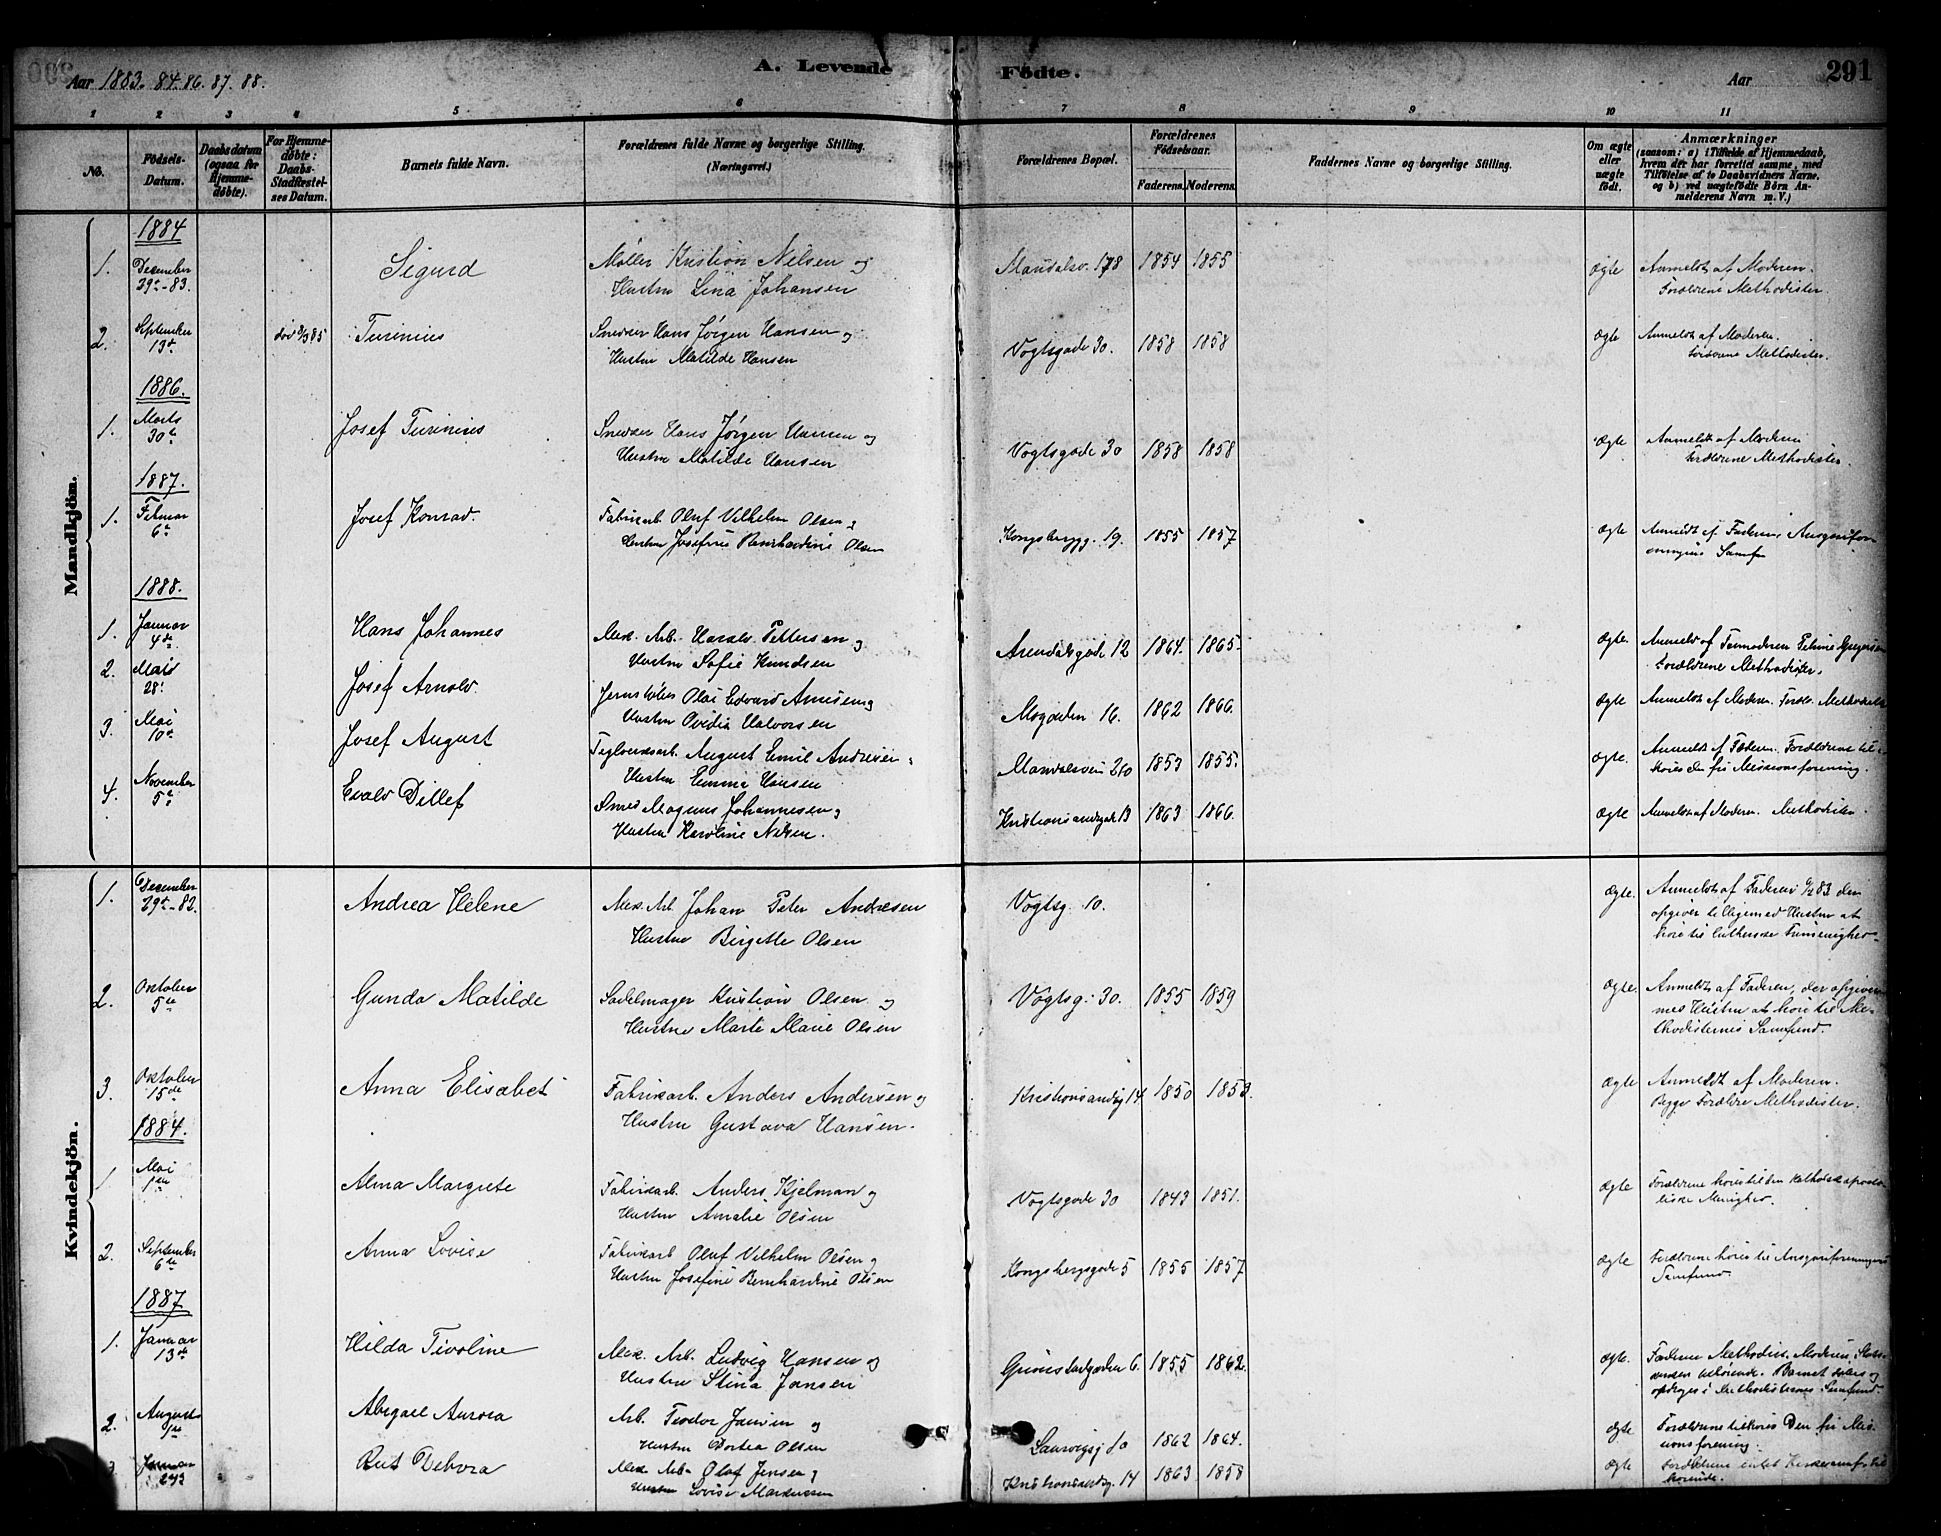 Aar 1883. 84. 86. 87. 88.
A. Levende Fødte.
Aar
291
1 2 3 4 5 6 7 8 9 10 11
No.
Fødsels-Datum.
Daabsdatum (ogsaa for Hjemmedøbte).
For Hjemmedøbte: Daabs-Stadfæstelses Datum.
Barnets fulde Navn.
Forældrenes fulde Navne og borgerlige Stilling. (Næringsvei.)
Forældrenes Bopæl.
Forældrenes Fødselsaar.
Faderens. Moderens.
Faddernes Navne og borgerlige Stilling.
Om ægte eller uægte født.
Anmærkninger (saasom: a) i Tilfælde af Hjemmedaab, hvem der har forrettet samme, med Tilføielse af to Daabsvidners Navne. og b) ved uægtefødte Børn Anmelderens Navn m. V.)
Mandkjön.
1884
1. December 29 - 83. Sigurd Møller Kristian Nilsen og Mandalsv. 178 1854 1855 ægte Anmeldt af Moderen.
Hustru Lina Johansen Forældrene Methodister.
2. September 13de død 85 Turinius Snedker Hans Jørgen Hansen og Vogtsgade 30. 1858 1858 ægte Anmeldt af Moderen.
Hustru Matilde Hansen Forældrene Methodister.
1886.
1. Marts 30 Josef Turinius Snedker Hans Jørgen Hansen og Vogtsgade 30 1858 1858 ægte Anmeldt af Moderen
Hustru Matilde Hansen Forældrene Methodister.
1887.
1. Februar 6 Josef Konrad. Fabrikarb. Oluf Vilhelm Olsen Kongsbergg. 19. 1855 1857 ægte Anmeldt af Faderen, Ansgarifor-
Hustru Josefine Bernhardine Olsen eningens Samfn
1888.
1. Januar 4de Hans Johannes Mek. Arb. Harald Pettersen og Arendalsgade 12 1864. 1865. ægte. Anmeldt af Jormoderen Gregersen
Hustru Sofie Knudsen Forældrene Methodister.
2. 28 Josef Arnold. Olai Edvard og Maagaden 16. 1862 1866. ægte Anmeldt af Moderen. Foræld. Methodister
Hustru Ovedia Halvorsen
3. Mai 10 Josef August Teglværksarb. August Emil Andresen Mandalsvei 20 1853 1855. ægte. Anmeldt af Faderen. Forældrene til-
Hustru Emma Hansen høres den fri Missionsforening.
4. November 5 Evald Ditlef Smed Magnus Johannesen og Kristiansandsgade 13 1863 1866. ægte Anmeldt af Moderen. Methodister.
Hustru Karoline Nilsen.
Kvindekjön.
1. December 29 - 82. Andrea Helene Mek. Arb. Johan Peter Andresen Vogtsg. 10. ægte. Anmeldt af Faderen 83 der
Hustru Birgitte Olsen opgiver tilligemed Hustru at
høre til lutherske Frimenighed
2. Oktober 5te Gunda Matilde Sadelmager Kristian Olsen og Vogtsg. 30. 1855 1859 ægte. Anmeldt af Faderen, der opgiver
Hustru Marte Marie Olsen sines Hustru at høre til Me-
thodisternes Samfund.
3. Oktober 15de Anna Elisabet Fabrikarb. Anders Andersen og Kristiansandsg 14 1850 1853. ægte Anmeldt af Moderen.
Hustru Gustava Hansen. Begge Forældre Methodister.
1884.
1 Mai 1ste Alma Margrete Fabrikarb. Anders Kjelman og Vogtsgade 30 1843 1851. ægte Forældrene høre til den katholsk aposto-
Hustru Amalie Olsen liske Menighed.
2. September 6te Anna Lovise Fabrikarb Oluf Vilhelm Olsen og Kongsbergsgade 5 1855 1857 ægte Forældrene høre til Ansgariforeningens
Hustru Josefine Bernhardine Olsen Samfund.
1887
1. Januar 13de Hilda Tivoline Mek. Arb. Ludvig Hansen og Grimstadgaden 6. 1855 1862. ægte. Faderen Methodist. Moderen Stats-
Hustru Stina Jansen kirken tilhørende. Barnet døbes og
opdrages i Methodisternes Samfund.
2. August 1ste Abigael Aurora Arb. Teodor Jansen og Laurvigsg 10 1862 1864. ægte Forældrene tilhøre Den fri Mis-
Hustru Dortea Olsen sionsforening.
Januar Rut Debora Mek. Arb. Olaf Jensen og Kristiansandsg. 14 1863 1858 ægte Forældrene intet Kirkesamf. til-
Hustru Lovise Markussen hørende.